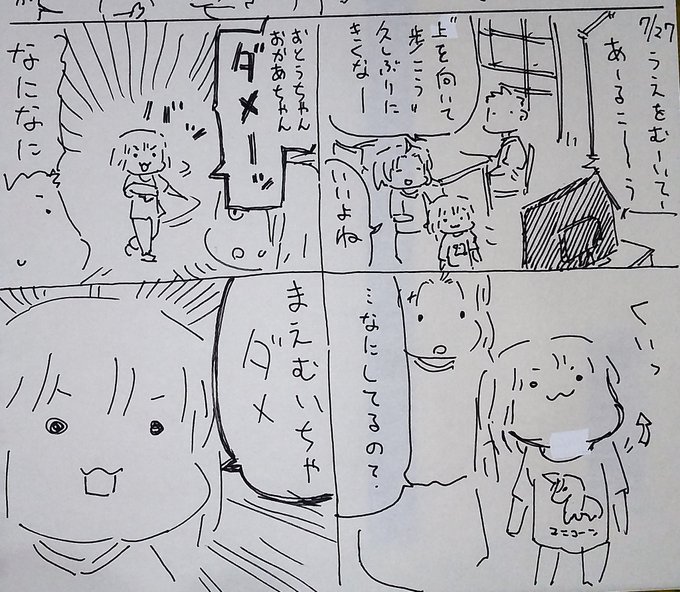 7/27
うえをむーいてー
あーるこーーう
"上を向いて
歩こう"
久しぶりに
きくなー
いいよね
おとうちゃん
おかあちゃん
ダメーーッ
バッ
なになに
くいっ
ユニコーン
…なにしてるので・
まえむいちゃ
ダメ